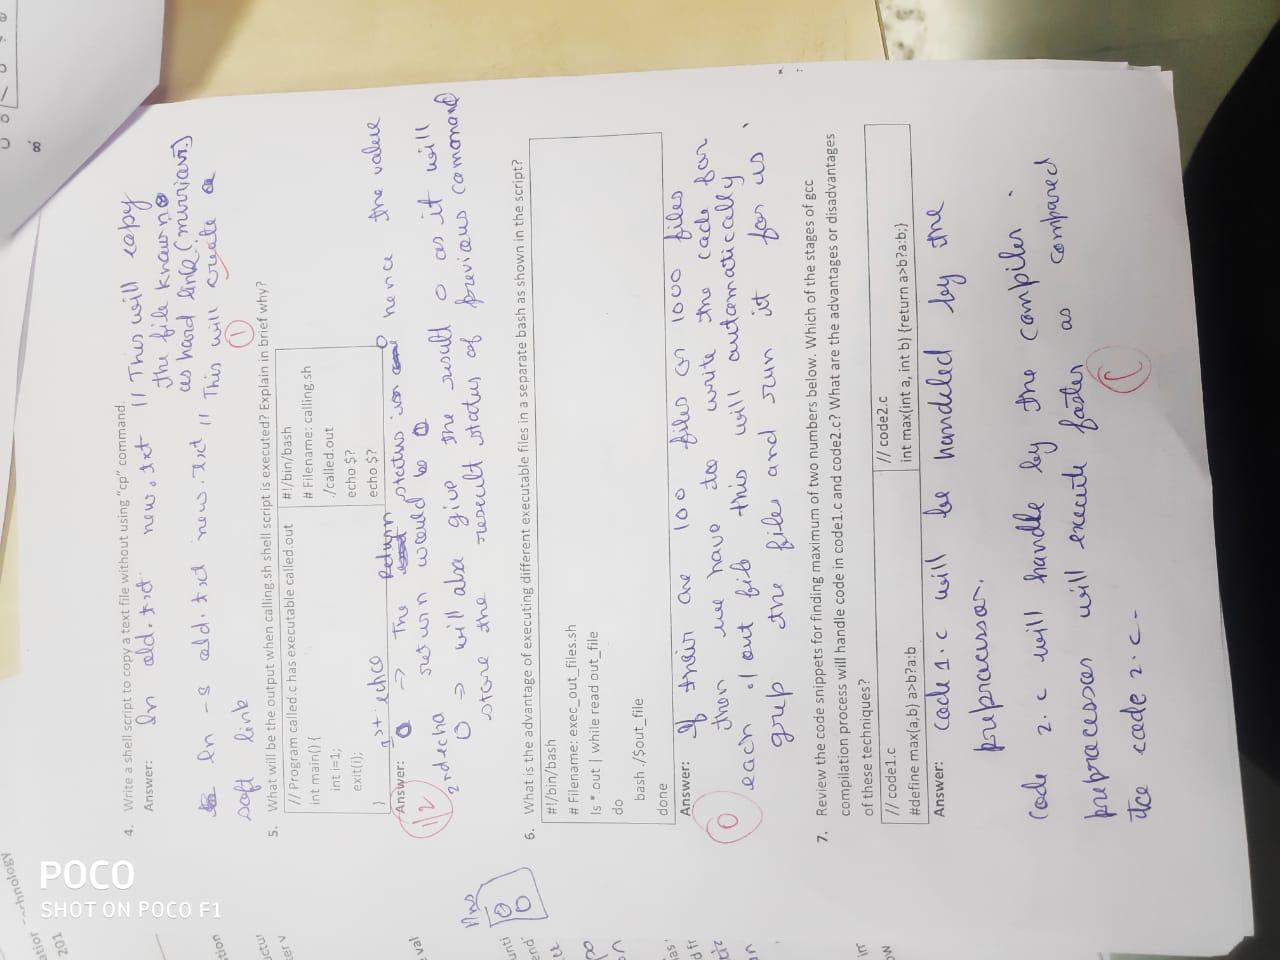 POCO
SHOT ON POCO F1
chnology
201
tion
val
4. Write a shell script to copy a text file without using "cp" command.
Answer: ln old.txt new.txt // This will copy
the file known
as hard link
ln -s old.txt new.txt // This will create a
soft link
1
5. What will be the output when calling.sh shell script is executed? Explain in brief why?
// Program called.c has executable called.out
int main() {
int i=1;
exit(i);
}
#!/bin/bash
# Filename: calling.sh
./called.out
echo $?
echo $?
1st echo
Answer: 0 → The Return status is 0 hence the value
return would be 0
1/2
2nd echo
0 ⇒ will also give the result 0 as it will
store the result status of previous command
Ans
0
0
6. What is the advantage of executing different executable files in a separate bash as shown in the script?
#!/bin/bash
# Filename: exec_out_files.sh
ls *.out | while read out_file
do
bash ./$out_file
done
Answer: If their are 100 files or 1000 files
then we have to write the code for
0
each ./out file this will automatically
grep the files and run it for us
7. Review the code snippets for finding maximum of two numbers below. Which of the stages of gcc
compilation process will handle code in code1.c and code2.c? What are the advantages or disadvantages
of these techniques?
// code1.c
#define max(a,b) a>b?a:b
// code2.c
int max(int a, int b) {return a>b?a:b;}
Answer: code 1.c will be handeled by the
preprocessor.
Code 2.c will handle by the compiler.
preprocessor will execute faster as compared
to code 2.c-
1
8.